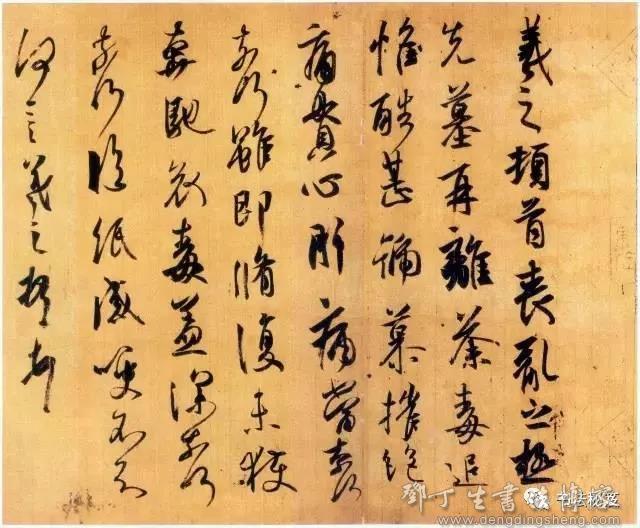 羲之頓首喪亂之極
先墓再離荼毒追
惟酷甚號慕摧絕
痛貫心肝痛當奈何
奈何雖即脩復未獲
奔馳哀毒益深奈何
奈何臨紙感哽不知
何言羲之頓首
鄧丁生書
www.dengdingsheng.com